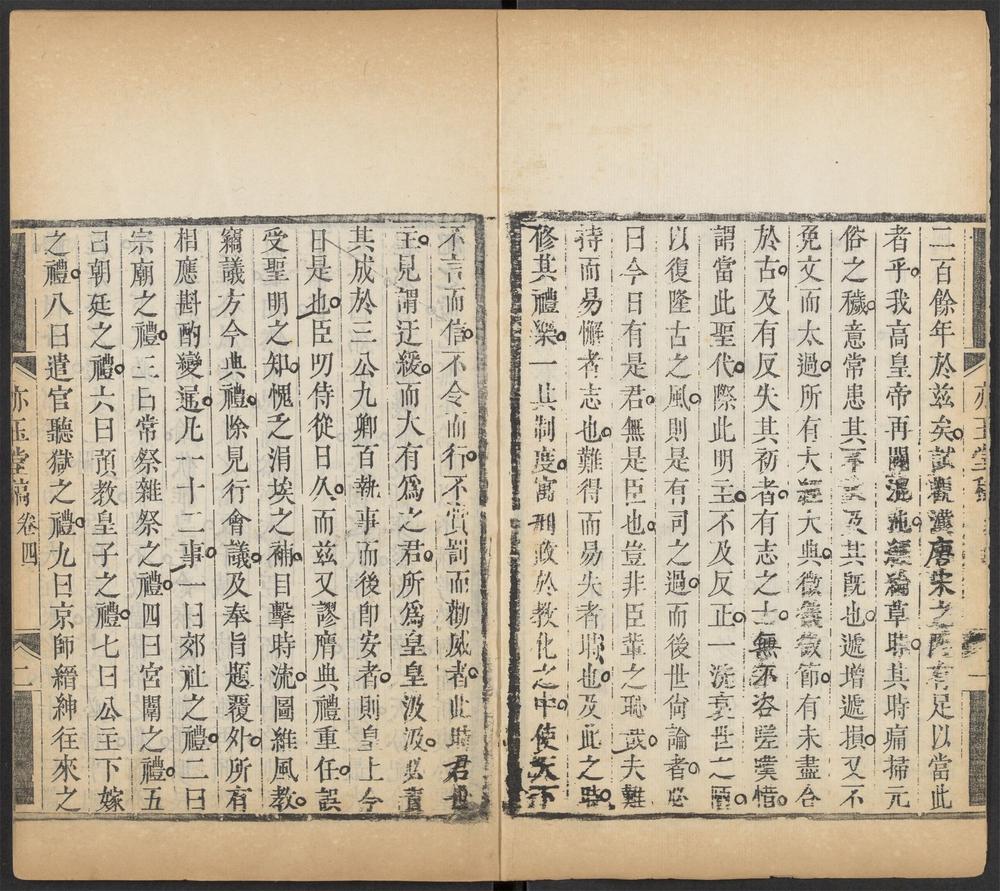 二百餘年於茲矣試觀漢唐宋之際有足以當此
者乎我高皇帝再闢混沌經綸草昧其時痛掃元
俗之穢意常患其及其旣也遞增遞損又不
免文而太過所有大經大典微儀微節有未盡合
於古及有反失其初者有志之士無不咨嗟嘆惜
謂當此聖代際此明主不及反正一洗衰世之陋
以復隆古之風則是有司之過而後世尚論者必
曰今日有是君無是臣也豈非臣輩之恥哉夫難
持而易懈者志也難得而易失者時也及此之時
修其禮樂一其制度寓刑政於教化之中使天下
不言而信不令而行不賞罰而勸威者此時君世
主見謂迂緩而大有爲之君所爲皇皇汲汲必責
其成於三公九卿百執事而後卽安者則皇上今
日是也臣叨侍從日久而茲又謬膺典禮重任誤
受聖明之知愧乏涓埃之補目擊時流圖維風教
竊議方今典禮除見行會議及奉旨題覆外所有
相應斟酌變通凡一十二事一曰郊祉之禮二曰
宗廟之禮三曰常祭雜祭之禮四曰宮闈之禮五
曰朝廷之禮六曰預教皇子之禮七曰公主下嫁
之禮八曰遣官聽獄之禮九曰京師縉紳往來之
亦玉堂稿 卷四
二
亦玉堂稿
一